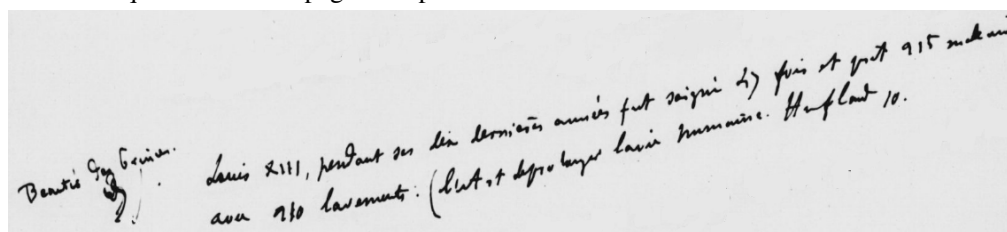 Louis XIII, pendant ses dix dernières années fut saigné 47 fois et prit 915 médecines
avec 930 lavements. (L'art de prolonger la vie humaine. Hufland 10.
Beautés